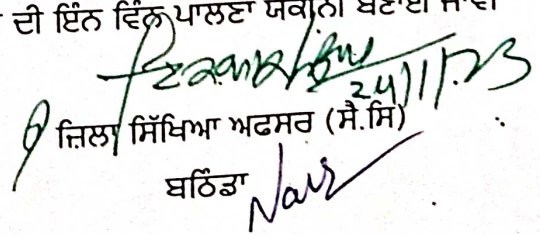 ਦੀ ਇੰਨ ਵਿੰਨ ਪਾਲਣਾ ਯਕੀਨੀ ਬਣਾਈ ਜਾਵੇ
24/11/23
ਜ਼ਿਲਾ ਸਿੱਖਿਆ ਅਫਸਰ (ਸੈ.ਸਿ)
ਬਠਿੰਡਾ